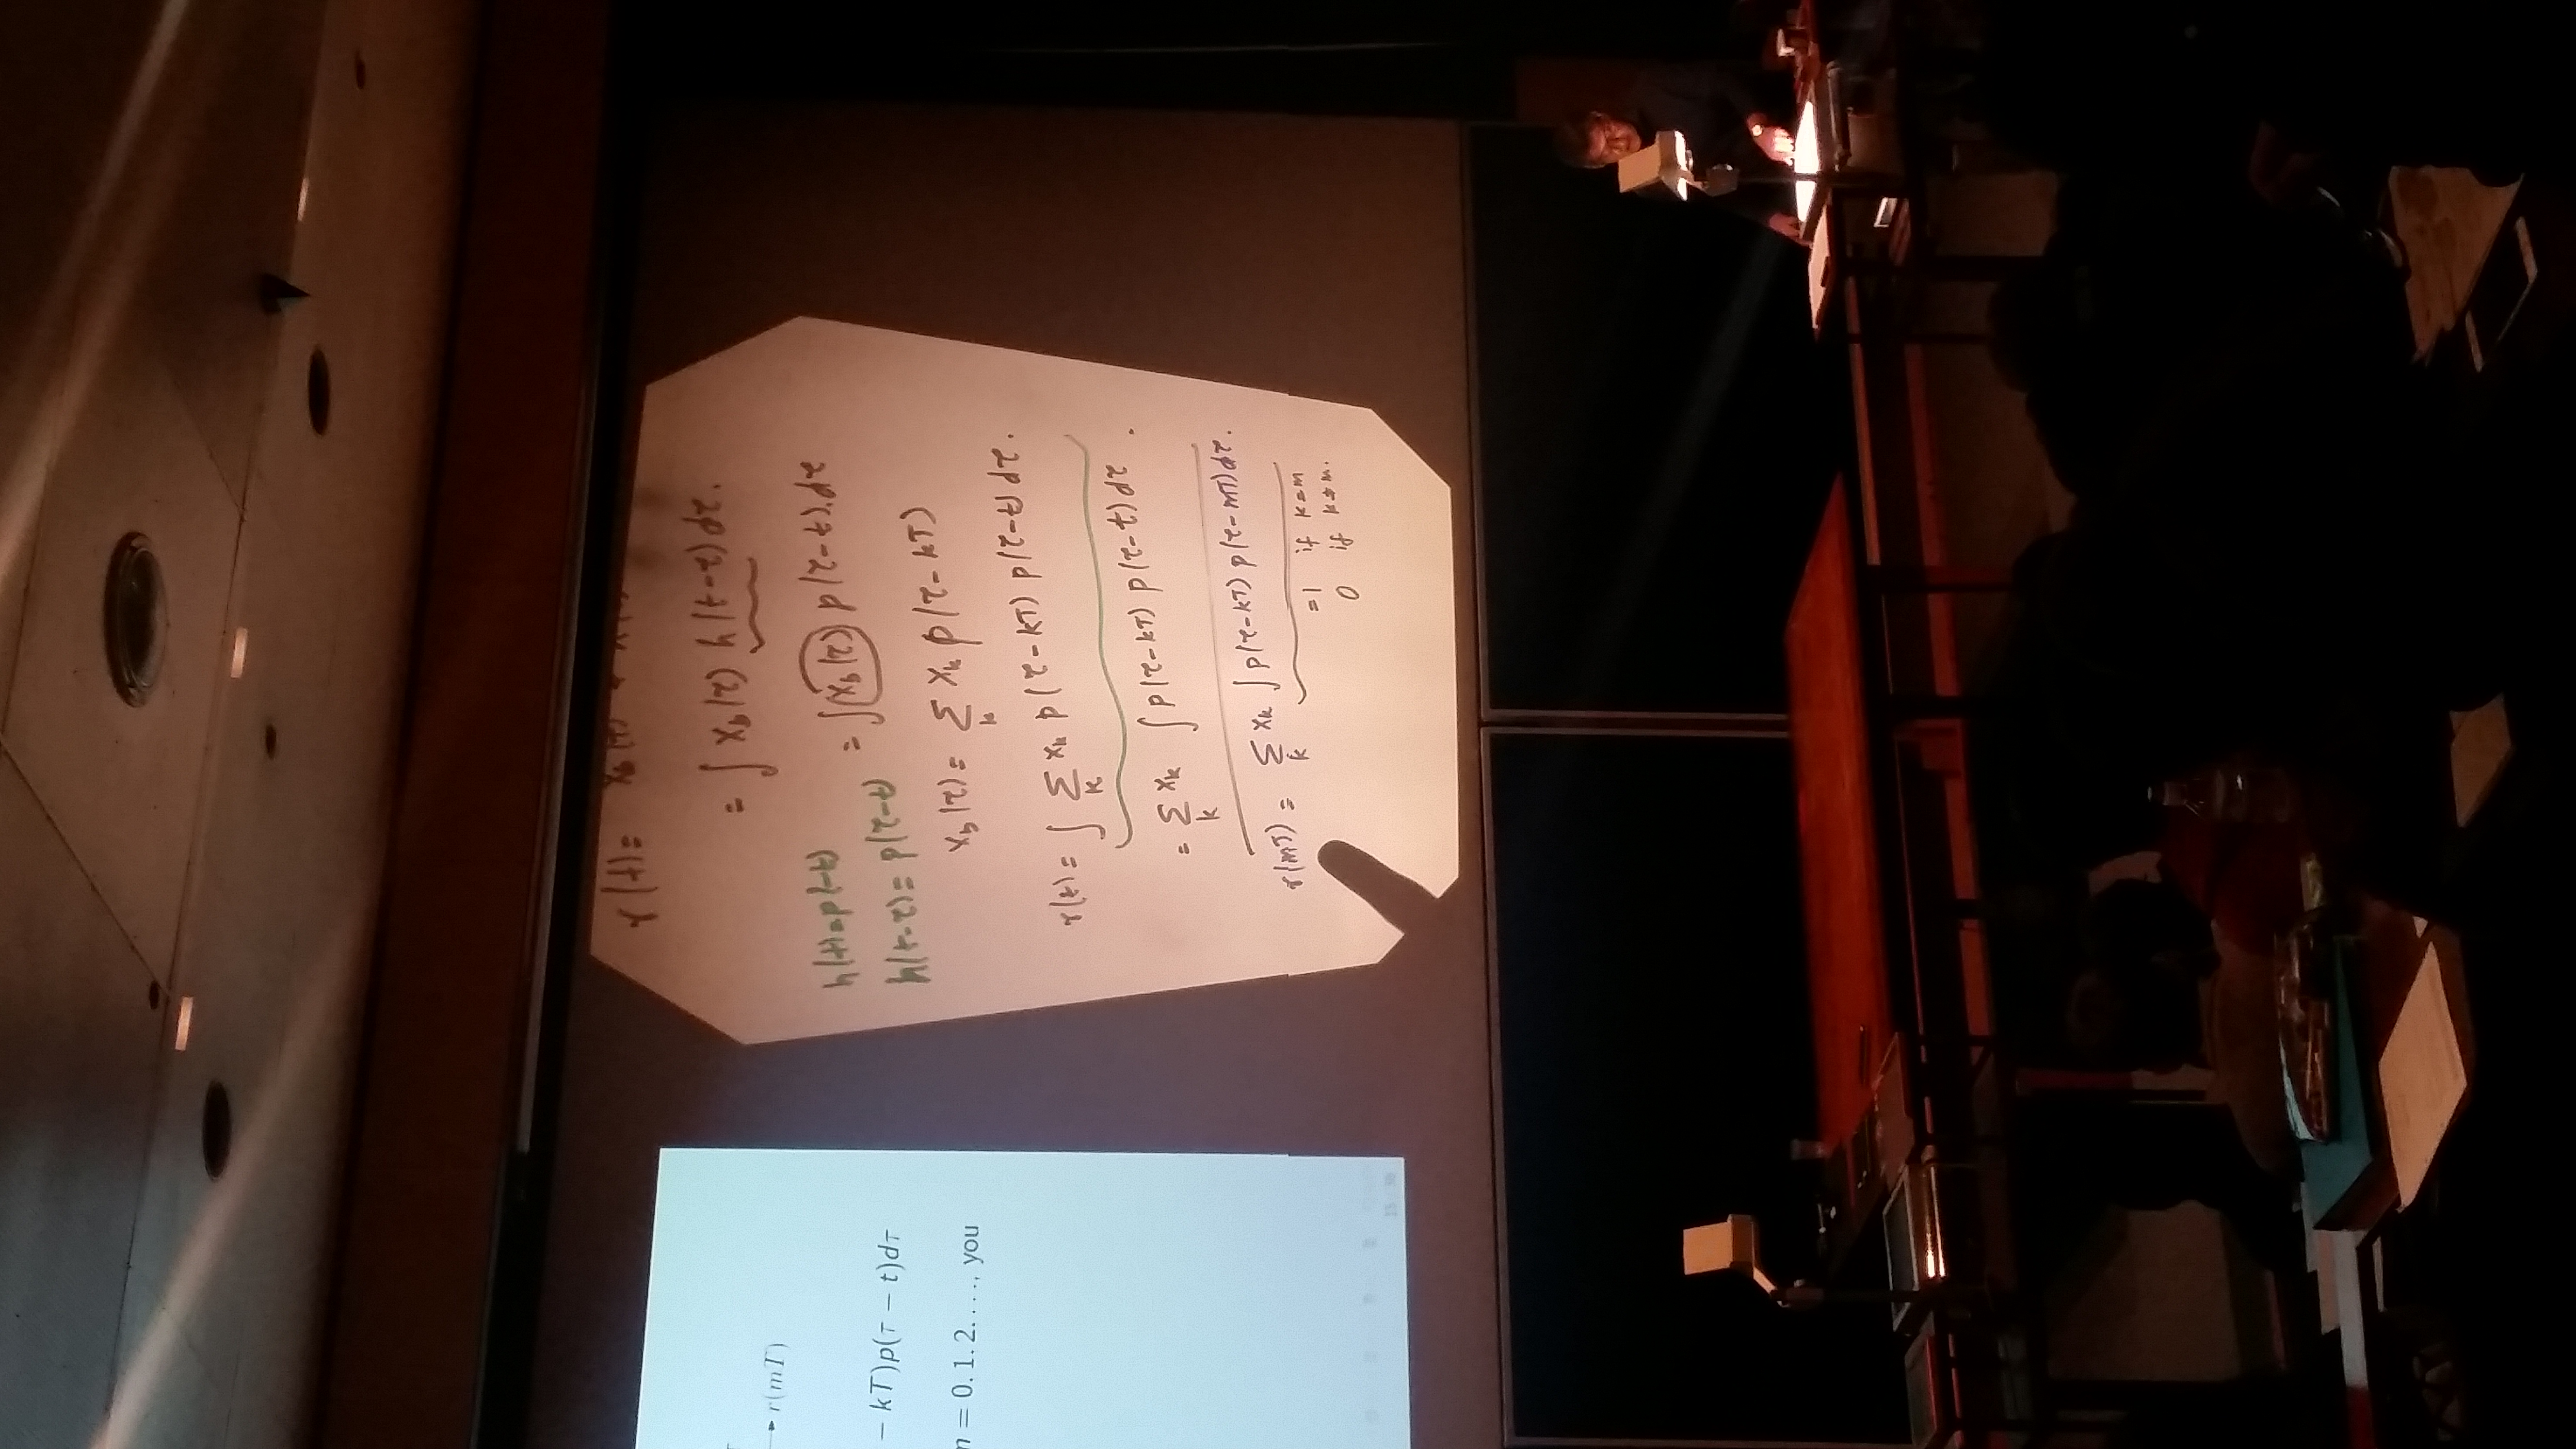 r(mT)
− kT)p(τ − t)dτ
= 0, 1, 2, ..., you
15 / 30
r(t) = x_b(τ)
= ∫ x_b(τ) h(t-τ) dτ.
h(t) = p(-t)
= ∫ x_b(τ) p(τ-t) dτ
h(t-τ) = p(τ-t)
x_b(τ) = Σ_k x_k p(τ-kT)
r(t) = ∫ Σ_k x_k p(τ-kT) p(τ-t) dτ.
= Σ_k x_k ∫ p(τ-kT) p(τ-t) dτ.
r(mT) = Σ_k x_k ∫ p(τ-kT) p(τ-mT) dτ.
=1 if k=m
0 if k≠m.